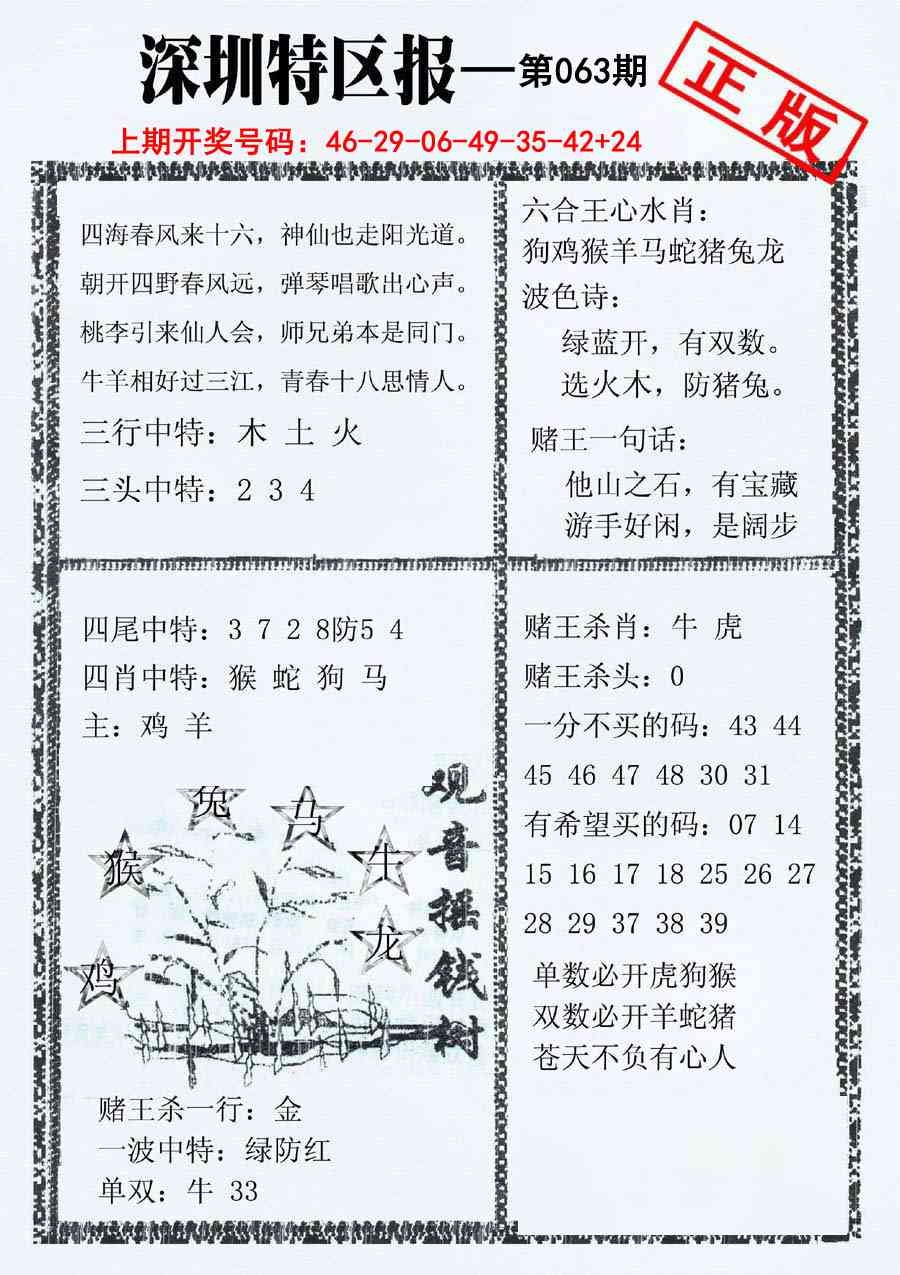 深圳特区报—第063期
正版
上期开奖号码：46-29-06-49-35-42+24
四海春风来十六，神仙也走阳光道。
朝开四野春风远，弹琴唱歌出心声。
桃李引来仙人会，师兄弟本是同门。
牛羊相好过三江，青春十八思情人。
三行中特：木 土 火
三头中特：2 3 4
六合王心水肖：
狗鸡猴羊马蛇猪兔龙
波色诗：
绿蓝开，有双数。
选火木，防猪兔。
赌王一句话：
他山之石，有宝藏
游手好闲，是阔步
四尾中特：3 7 2 8防5 4
四肖中特：猴 蛇 狗 马
主：鸡 羊
兔
马
猴
牛
龙
鸡
观音摇钱树
赌王杀一行：金
一波中特：绿防红
单双：牛 33
赌王杀肖：牛 虎
赌王杀头：0
一分不买的码：43 44
45 46 47 48 30 31
有希望买的码：07 14
15 16 17 18 25 26 27
28 29 37 38 39
单数必开虎狗猴
双数必开羊蛇猪
苍天不负有心人